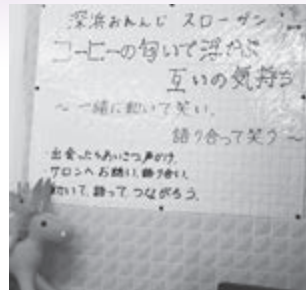 深浜おれんじ スローガン
コーヒーの匂いで浮かぶ
互いの気持ち
～一緒に動いて笑い、
語り合って笑う～
・出会ったらあいさつ声がけ。
・サロンへお誘い、語り合い。
・動いて、語って、つながろう。